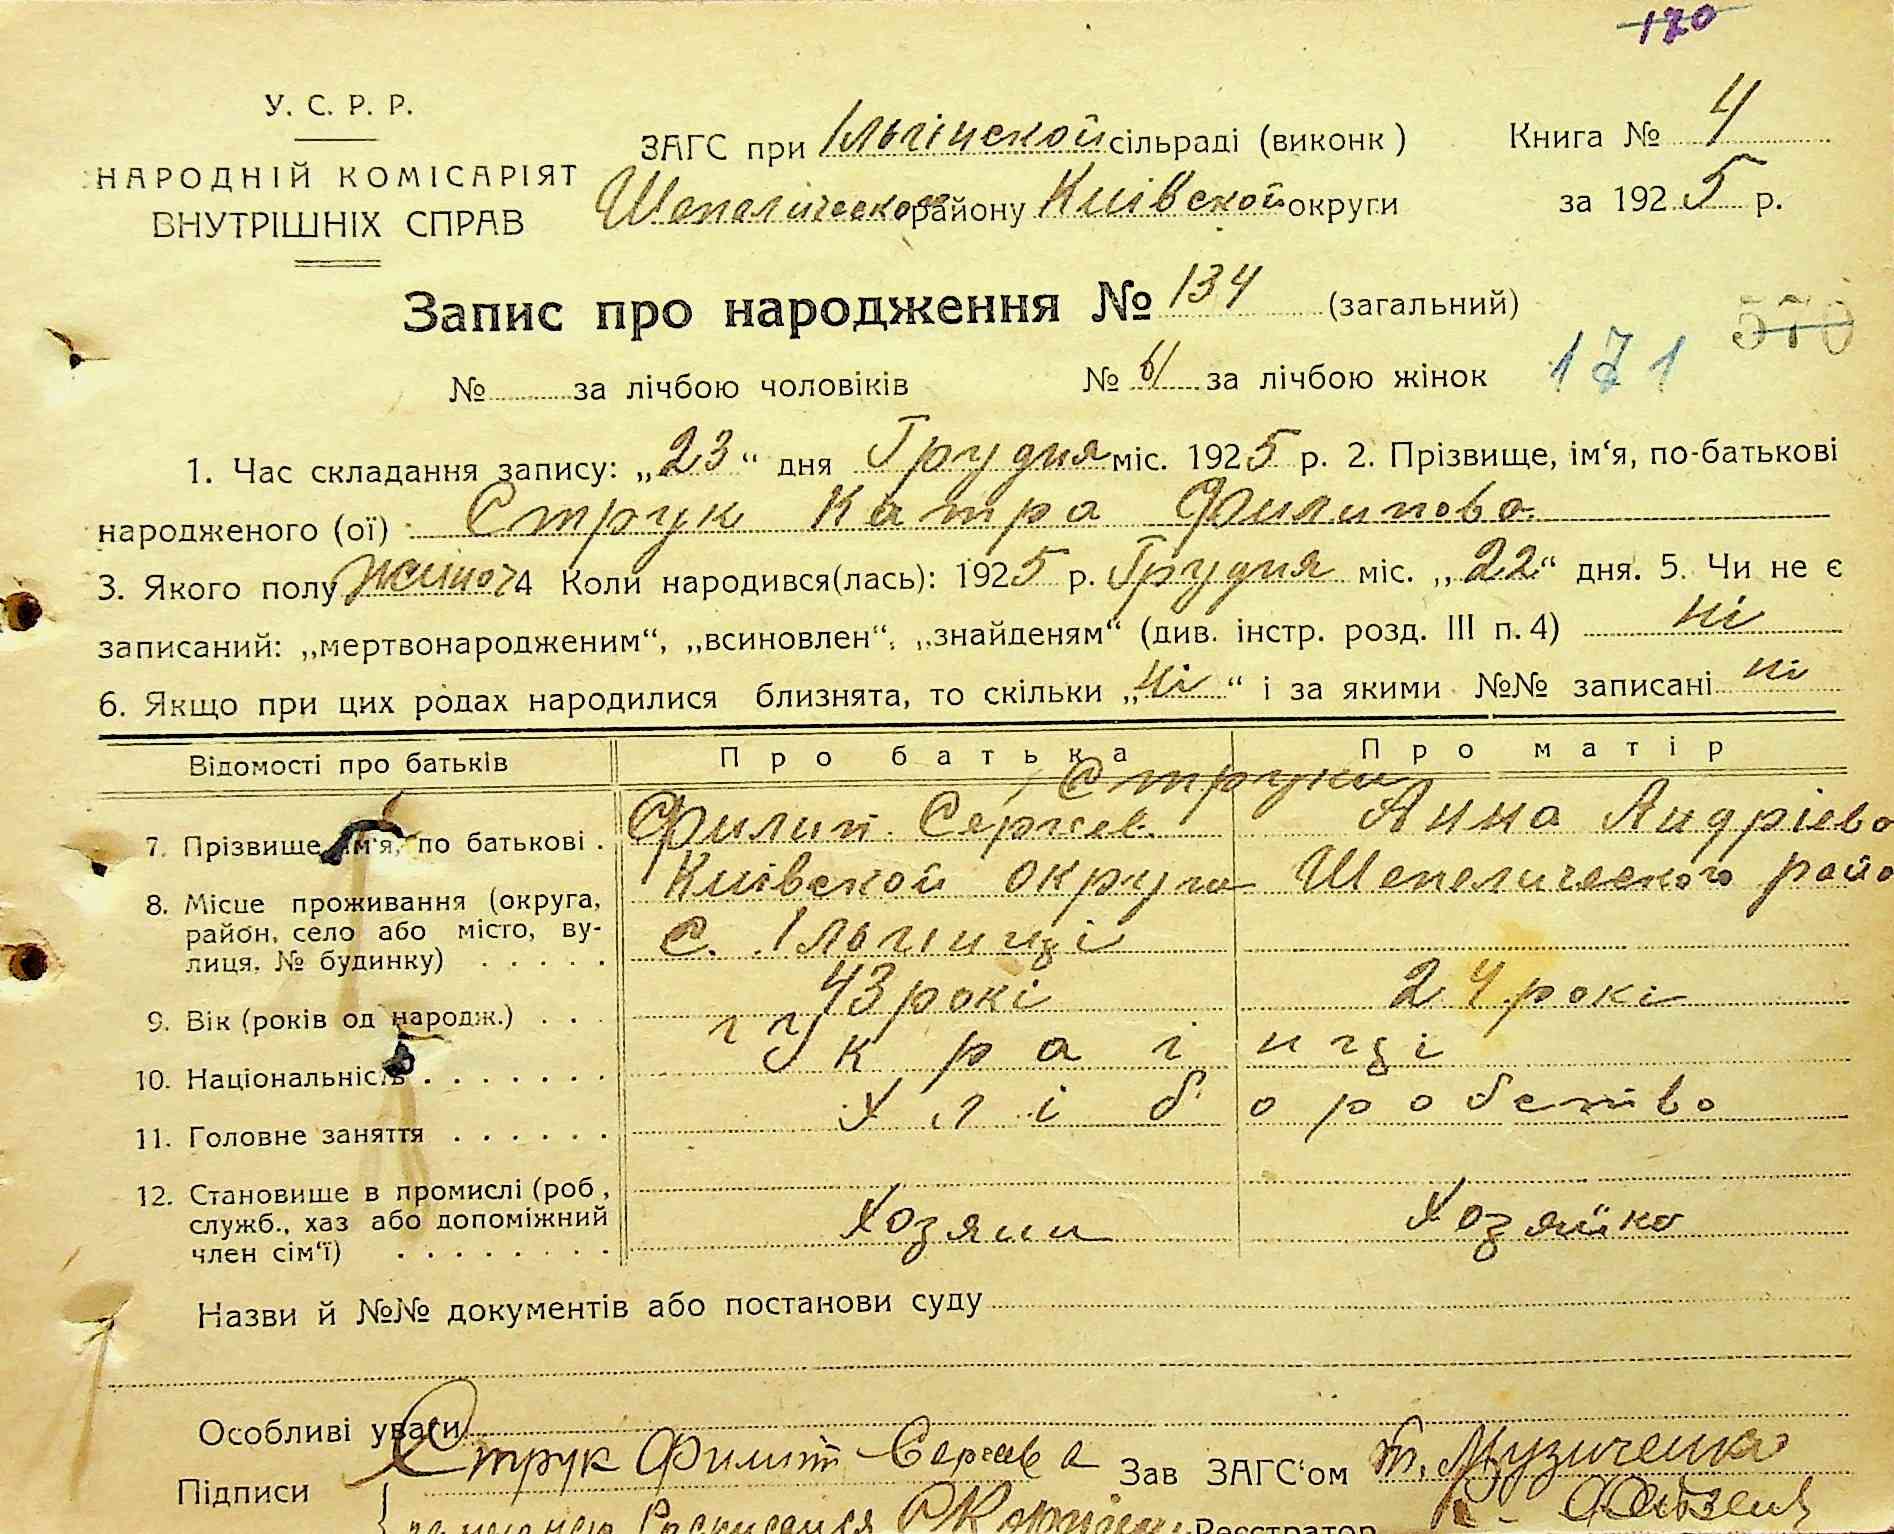 170
У. С. Р. Р.
НАРОДНІЙ КОМІСАРІЯТ
ВНУТРІШНІХ СПРАВ
ЗАГС при Ільгінской сільраді (виконк)
Шепелическом району Київской округи
Книга № 4
за 1925 р.
Запис про народження № 134 (загальний)
570
171
№ за лічбою чоловіків № 61 за лічбою жінок
1. Час складання запису: „23“ дня Грудня міс. 1925 р. 2. Прізвище, ім‘я, по-батькові
народженого (ої) Струк Катра Филипова
3. Якого полу жиноч 4 Коли народився(лась): 1925 р. Грудня міс. „22“ дня. 5. Чи не є
записаний: „мертвонародженим“, „всиновлен“, „знайденям“ (див. інстр. розд. III п. 4) ні
6. Якщо при цих родах народилися близнята, то скільки „ні“ і за якими №№ записані ні
Відомості про батьків Про батька Про матір
Струки
7. Прізвище ім‘я, по батькові . Филип Сергіев Анна Андріева
8. Місце проживання (округа, район, село або місто, ву-
лиця, № будинку) . . . . . Київской округи Шепелического райо
с. Ільгинці
9. Вік (років од народж.) . . . 43 рокі 24 рокі
10. Національність . . . . . . . Украінці
11. Головне заняття . . . . . . Хліборобство
12. Становище в промислі (роб, служб., хаз або допоміжний
член сім‘ї) . . . . . . . . Хозяин Хозяйка
Назви й №№ документів або постанови суду
Особливі уваги
Підписи Струк Филип Сергіева Зав ЗАГС‘ом Т. Музиченко
Реєстратор